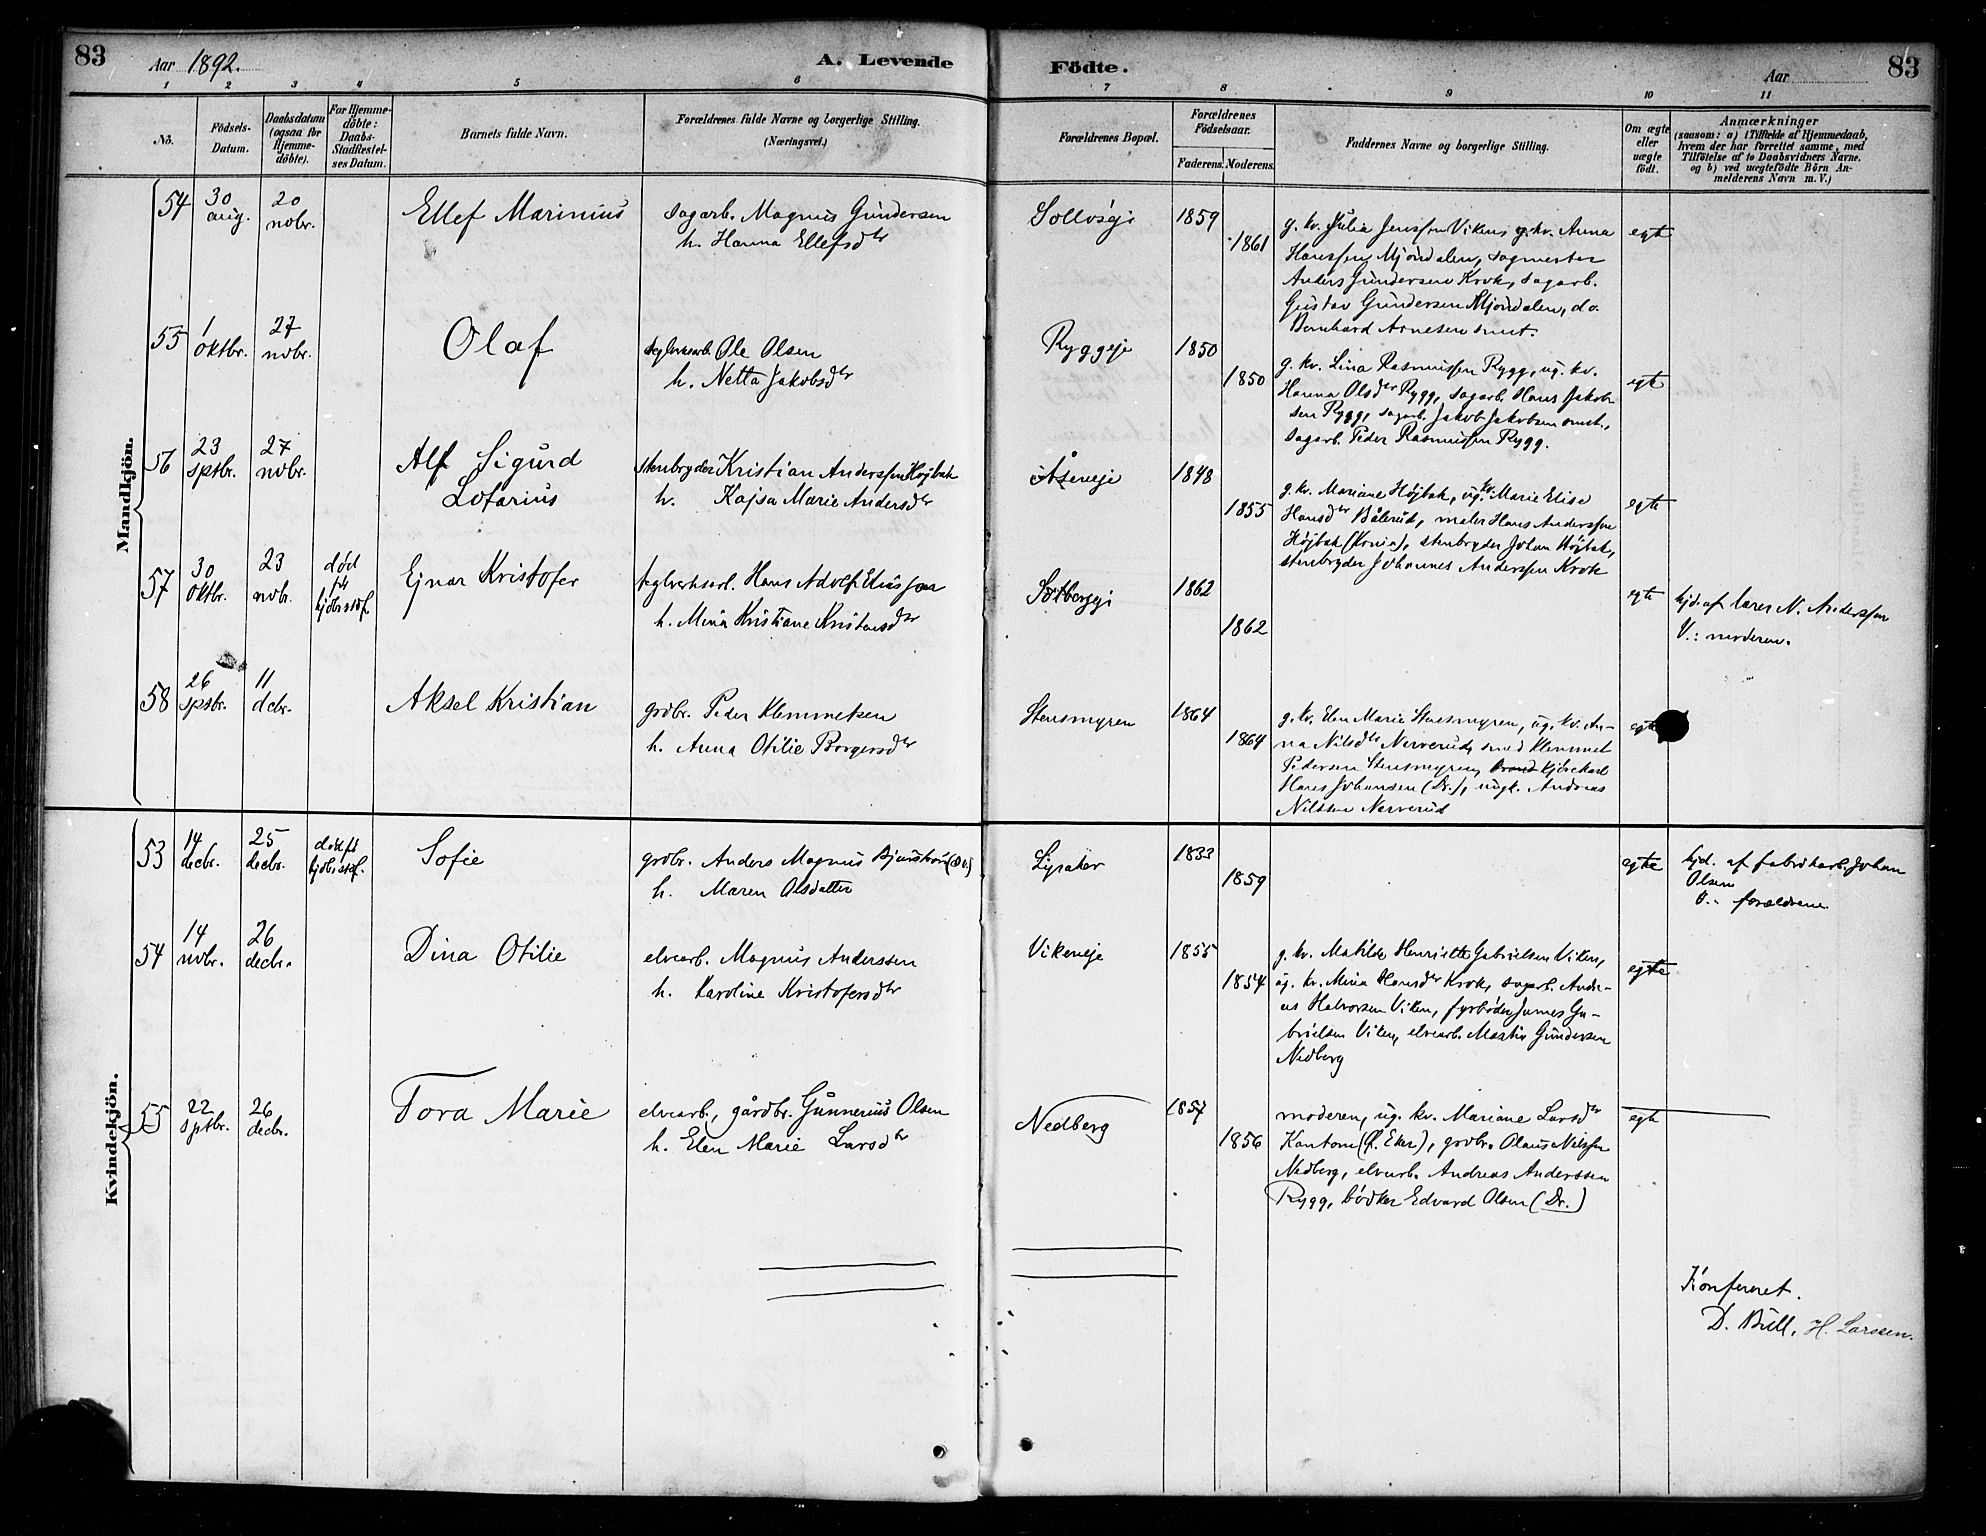 83
Aar 1892.
A. Levende
Födte.
Aar
83
1 2 3 4 5 6 7 8 9 10 11
No.
Födsels-Datum.
Daabsdatum (ogsaa for Hjemme-döbte).
For Hjemme-döbte: Daabs-Stadfestel-ses Datum.
Barnets fulde Navn.
Forældrenes fulde Navne og borgerlige Stilling. (Næringsvei.)
Forældrenes Bopæl.
Forældrenes Födselsaar.
Faderens. Moderens.
Faddernes Navne og borgerlige Stilling.
Om ægte eller uægte födt.
Anmærkninger
(saasom: a) i Tilfælde af Hjemmedaab, hvem der har forrettet samme, med Tilföielse af to Daabsvidners Navne. og b) ved uægtefödte Börn An-melderens Navn m. V.)
Mandkjön.
54
30 aug.
20 novbr.
Ellef Marinius
sagarb. Magnus Gundersen
h. Hanna Ellefsdtr
Solbergej
1859
1861
g. kv. Julia Jenssen Viken, g. kv. Anna
Hanssen Mjöndalen, sagmester
Anders Gundersen Krok, sagarb.
Gustav Gundersen Mjöndalen, do.
Bernhard Arnesen smst.
egte
55
1 oktbr.
27 novbr.
Olaf
teglverksarb. Ole Olsen
h. Netta Jakobsdtr
Ryggeje
1850
1850
g. kv. Lina Rasmussen Rygg, ug. kv.
Hanna Olsdtr Rygg, sagarb. Hans Jakob-
sen Rygg, sagarb. Jakob Jakobsen smst.,
sagarb. Peder Rasmussen Rygg.
egte
56
23 sptbr.
27 novbr.
Alf Sigurd
Lotarius
stenbryder Kristian Anderssen Højbak
h. Kajsa Marie Andersdtr
Åseneje
1848
1855
g. kv. Mariane Højbak, ug. kv. Marie Elise
Hansdtr Bålerud, maler Hans Anderssen
Højbak, stenbryder Johan Højbak,
stenbryder Johannes Anderssen Krok
egte
57
30 oktbr.
23 novbr.
død
før
kjbrstdf.
Ejnar Kristofer
teglverksarb. Hans Adolf Eliassen
h. Mina Kristiane Kristensdtr
Solbergej
1862
1862
egte
hjd. af lærer N. Anderssen
V.: moderen.
58
26 sptbr.
11 dcbr.
Aksel Kristian
grdbr. Peder Klemmetsen
h. Anna Otilie Borgersdtr
Stensmyren
1864
1864
g. kv. Elen Marie Stensmyren, ug. kv. An-
na Nilsdtr Nerverud, smed Klemmet
Pedersen Stensmyren, kjørekarl
Hans Johansen (Dr.), ungk. Andreas
Nilssen Nerverud
egte
Kvindekjön.
53
14 decbr.
25 decbr.
død fø
kjbrstdf.
Sofie
grdbr. Anders Magnus Bjurström (Sv.)
h. Maren Olsdatter
Lijeaker
1833
1859
egte
hjd. af fabrikarb. Johan
Olsen
V.: forældrene
54
14 novbr.
26 decbr.
Dina Otilie
elvearb. Magnus Anderssen
h. Karoline Kristofersdtr
Vikeneje
1855
1854
g. kv. Matilde Henriette Gabrielsen Viken,
ug. kv. Mina Hansdtr Krok, sagarb. Andre-
as Halvorsen Viken, fyrbøder James Ga-
brielsen Viken, elvearb. Martin Gundersen
Nedberg
egte
55
22 sptbr.
26 decbr.
Tora Marie
elvearb., gårdbr. Gunnerius Olsen
h. Elen Marie Larsdtr
Nedberg
1857
1856
moderen, ug. kv. Mariane Larsdtr
Kantom (Ø. Eker), grdbr. Olaus Nilssen
Nedberg, elvearb. Andreas Anderssen
Rygg, bødker Edvard Olsen (Dr.)
egte
Konfereret.
D. Bull, H. Larssen.